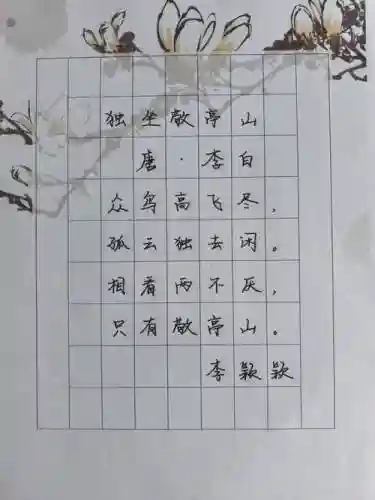 独坐敬亭山
唐·李白
众鸟高飞尽，
孤云独去闲。
相看两不厌，
只有敬亭山。
李颖颖